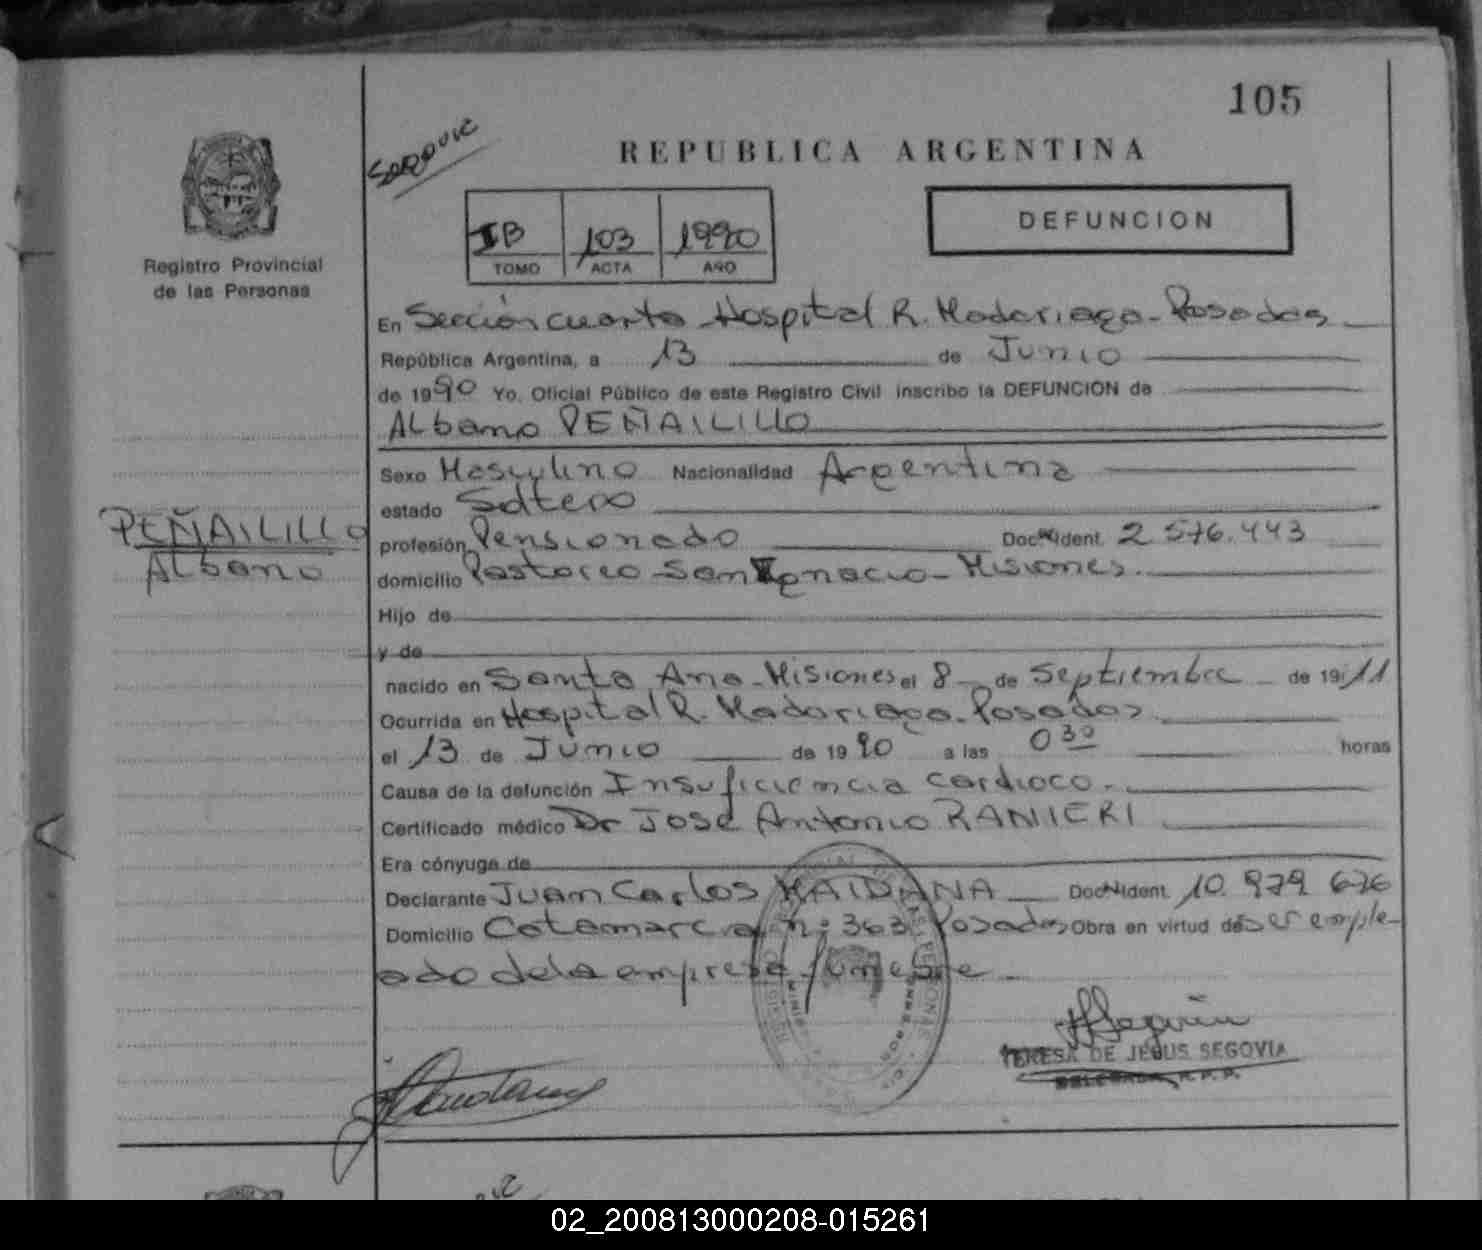 105
REPUBLICA ARGENTINA
DEFUNCION
Registro Provincial
de las Personas
IB 103 1990
TOMO ACTA AÑO
En Sección cuarta Hospital R. Madariaga - Posadas
República Argentina, a 13 de Junio
de 1990 Yo, Oficial Público de este Registro Civil inscribo la DEFUNCION de
Albano PEÑAILILLO
Sexo Masculino Nacionalidad Argentina
estado Soltero
PEÑAILILLO
Albano
profesión Pensionado Doc. Ident. 2.576.443
domicilio Pastoreo - San Ignacio - Misiones.
Hijo de
y de
nacido en Santa Ana - Misiones el 8 de Septiembre de 1911
Ocurrida en Hospital R. Madariaga - Posadas
el 13 de Junio de 1990 a las 0 30 horas
Causa de la defunción Insuficiencia cardiaca.
Certificado médico Dr Jose Antonio RANIERI
Era cónyuge de
Declarante Juan Carlos MAIDANA Doc. Ident. 10.979.676
Domicilio Catamarca n: 363 Posadas Obra en virtud de ser emple-
ado de la empresa funebre
TERESA DE JESUS SEGOVIA
DELEGADA R.P.P.
02_200813000208-015261